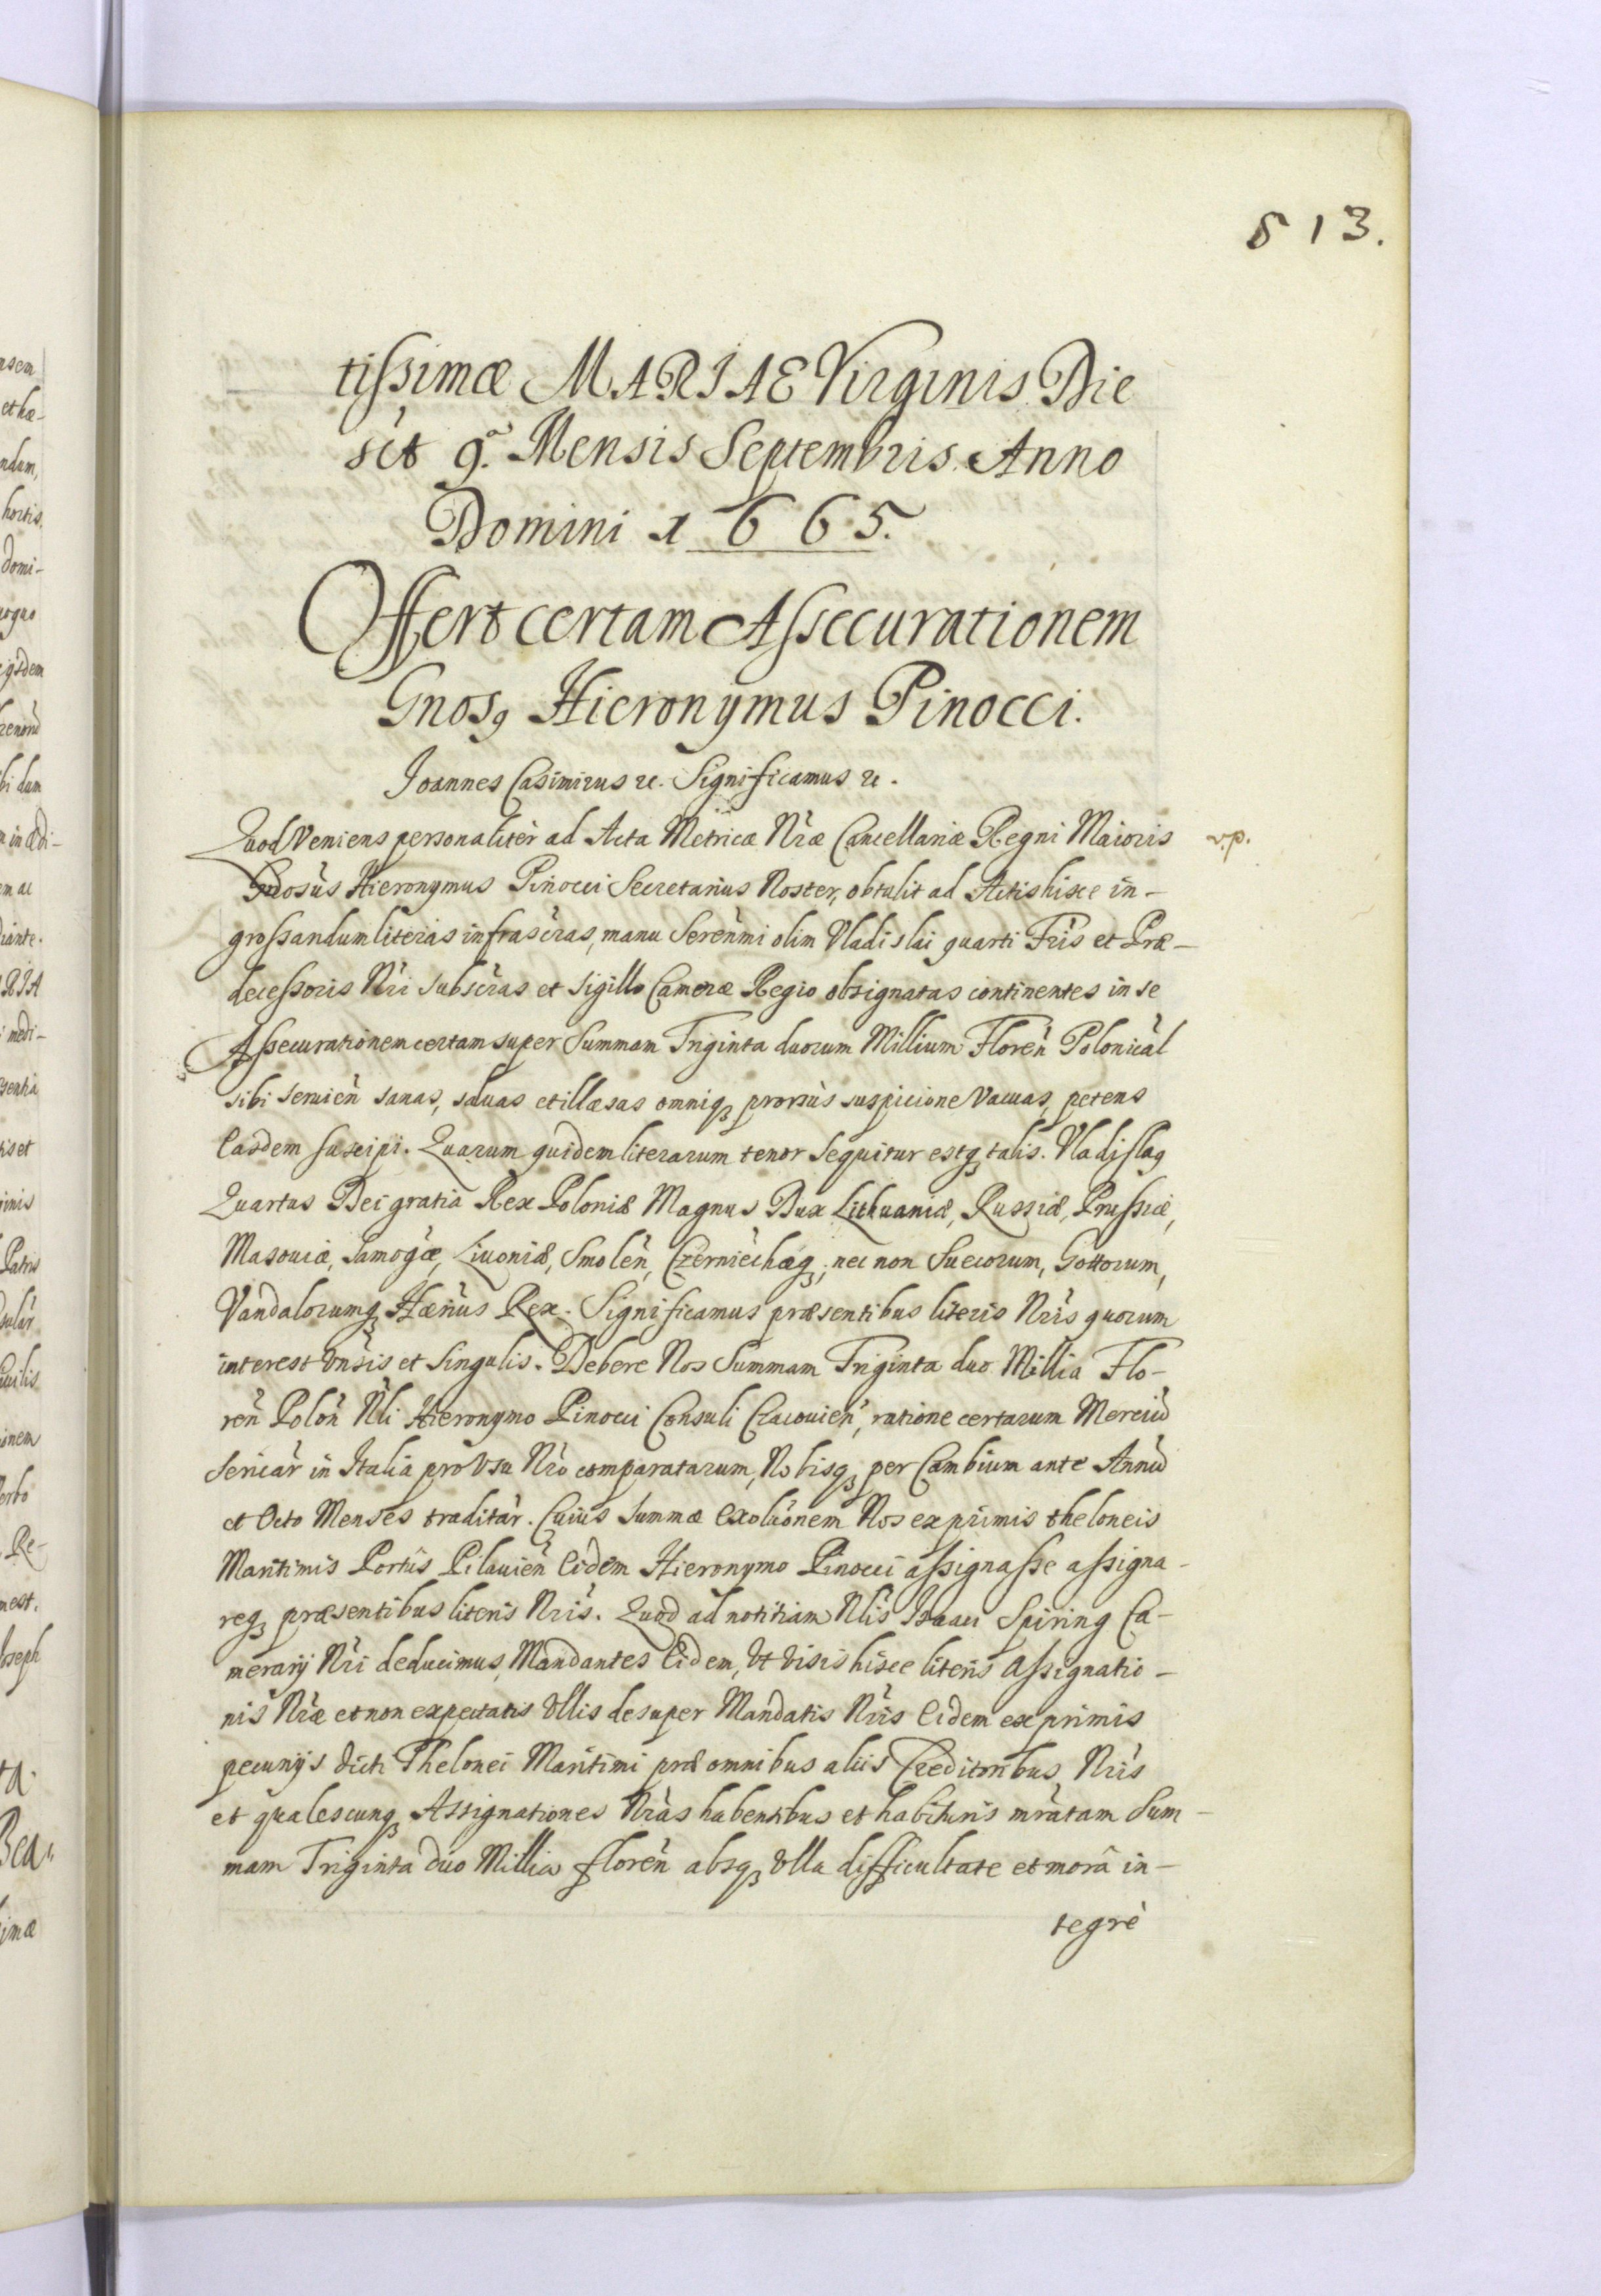 513.
tissimæ MARIAE Virginis Die
sct 9.ª Mensis Septembris Anno
Domini 1665.
Offert certam Assecurationem
Gnosꝰ Hieronymus Pinocci.
Joannes Casimirus etc. Significamus etc.
Quod Veniens personaliter ad Acta Metricæ Nræ Cancellariæ Regni Maioris v.p.
Gnosus Hieronymus Pinocci Secretarius Noster, obtulit ad Actis hisce in-
grossandum literas infrascras, manu Serenmi olim Vladislai quarti Fris et Præ-
decessoris Nri subscras et sigillo Cameræ Regio obsignatas continentes in se
Assecurationem certam super Summam Triginta duorum Millium Floren̄ Polonical
sibi seruien̄ sanas, saluas et illæsas omniqꝫ prorsùs suspicione Vacuas, petens
Easdem suscipi. Quarum quidem literarum tenor sequitur estqꝫ talis. Vladislaꝰ
Quartus Dei gratia Rex Poloniæ Magnus Dux Lithuaniæ, Russiæ, Prussiæ,
Masouiæ, Samogæ, Liuoniæ, Smolen̄, Czerniechæqꝫ, nec non Suecorum, Gottorum,
Vandalorumqꝫ Hærius Rex. Significamus præsentibus literis Nris quorum
interest Vnsis et Singulis. Debere Nos Summam Triginta duo Millia Flo-
ren̄ Polon̄ Nli Hieronymo Pinocci Consuli Cracouien̄, ratione certarum Merciū
Sericar̄ in Italia pro Vsu Nro comparatarum, Nobisqꝫ per Cambium ante Annū
et Octo Menses traditar̄. Cuius Summæ Exolūonem Nos ex primis theloneis
Maritimis Portûs Pilauien̄ Eidem Hieronymo Pinocci assignasse assigna-
reqꝫ præsentibus literis Nris. Quod ad notitiam Nlis Isaaci Spiring Ca-
merarij Nri deducimus, Mandantes Eidem, Vt visis hisce literis Assignatio-
nis Nræ et non expectatis Vllis desuper Mandatis Nris Eidem ex primis
pecunijs dicti Thelonei Maritimi præ omnibus aliis Creditoribus Nris
et qualescunqꝫ Assignationes Nras habentibus et habituris mratam Sum-
mam Triginta duo Millia floren̄ absqꝫ Vlla difficultate et morâ in-
tegrè